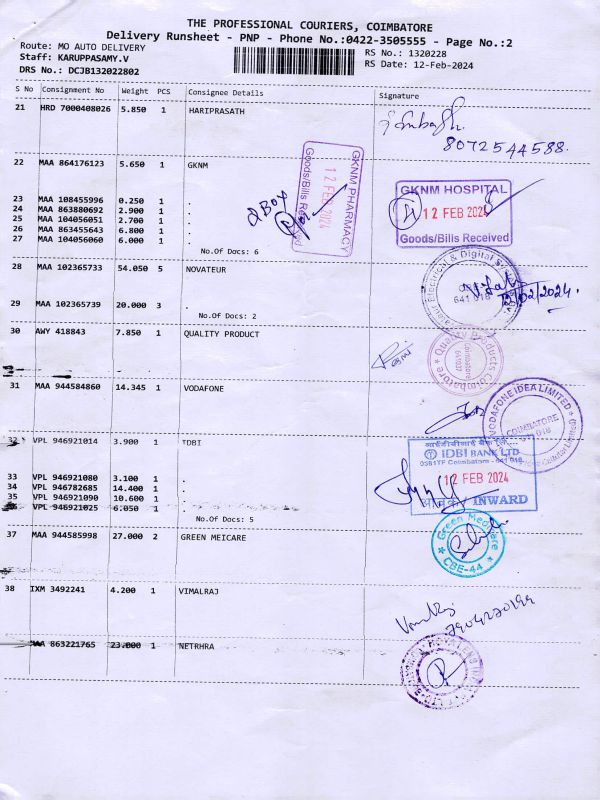 THE PROFESSIONAL COURIERS, COIMBATORE
Delivery Runsheet - PNP - Phone No.:0422-3505555 - Page No.:2
Route: MO AUTO DELIVERY
RS No.: 1320228
Staff: KARUPPASAMY.V
RS Date: 12-Feb-2024
DRS No.: DCJB132022802
S No Consignment No Weight PCS Consignee Details Signature
21 HRD 7000408026 5.850 1 HARIPRASATH
8072544588
22 MAA 864176123 5.650 1 GKNM
GKNM PHARMACY
12 FEB 2024
Goods/Bills Received
GKNM HOSPITAL
12 FEB 2024
Goods/Bills Received
2 BOX
23 MAA 108455996 0.250 1 .
24 MAA 863880692 2.900 1 .
25 MAA 104056051 2.700 1 .
26 MAA 863455643 6.800 1 .
27 MAA 104056060 6.000 1 .
No.Of Docs: 6
28 MAA 102365733 54.050 5 NOVATEUR
Electrical & Digital
641 018
12/02/2024
29 MAA 102365739 20.000 3 .
No.Of Docs: 2
30 AWY 418843 7.850 1 QUALITY PRODUCT
Quality Products
Coimbatore
Coimbatore
31 MAA 944584860 14.345 1 VODAFONE
VODAFONE IDEA LIMITED
COIMBATORE
32 VPL 946921014 3.900 1 TDBI
IDBI BANK LTD
Coimbatore - 641 018
12 FEB 2024
INWARD
33 VPL 946921080 3.100 1 .
34 VPL 946782685 14.400 1 .
35 VPL 946921090 10.600 1 .
36 VPL 946921025 6.050 1 .
No.Of Docs: 5
37 MAA 944585998 27.000 2 GREEN MEICARE
Green Medicare
CBE-44
38 IXM 3492241 4.200 1 VIMALRAJ
7904270194
MAA 863221765 23.000 1 NETRHRA